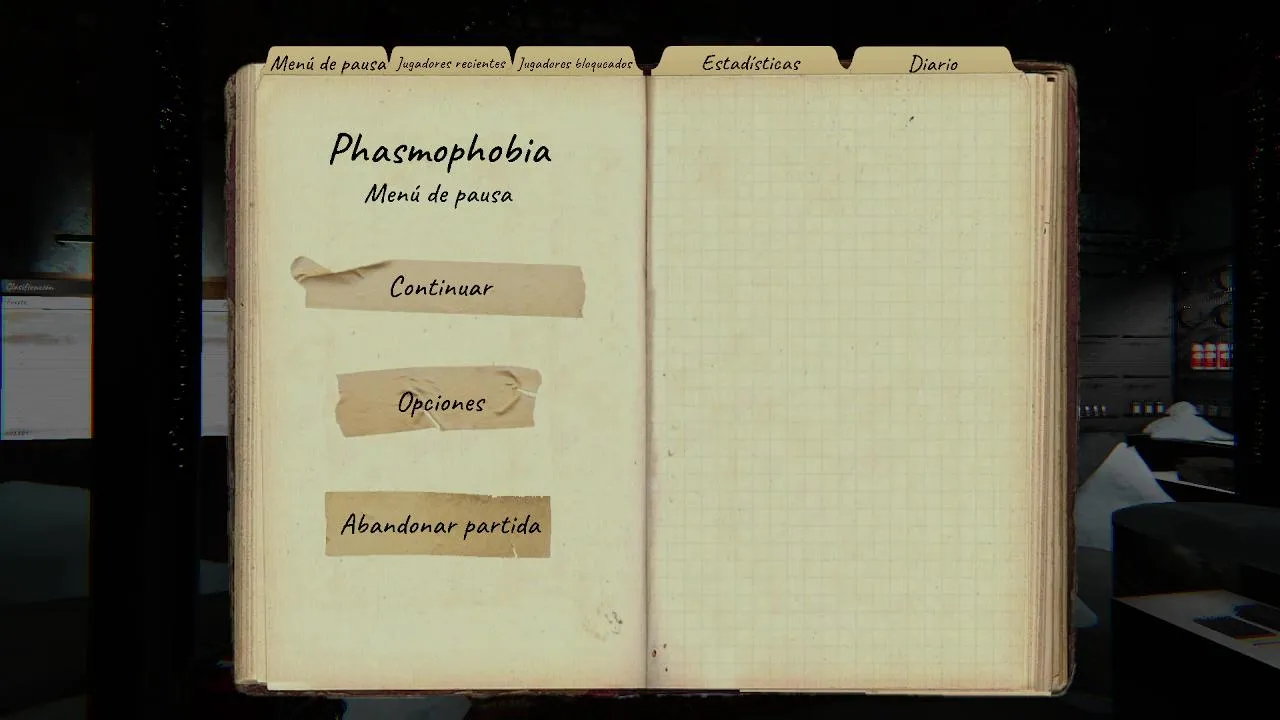 Menú de pausa
Jugadores recientes
Jugadores bloqueados
Estadísticas
Diario
Phasmophobia
Menú de pausa
Continuar
Opciones
Abandonar partida
Clasificación